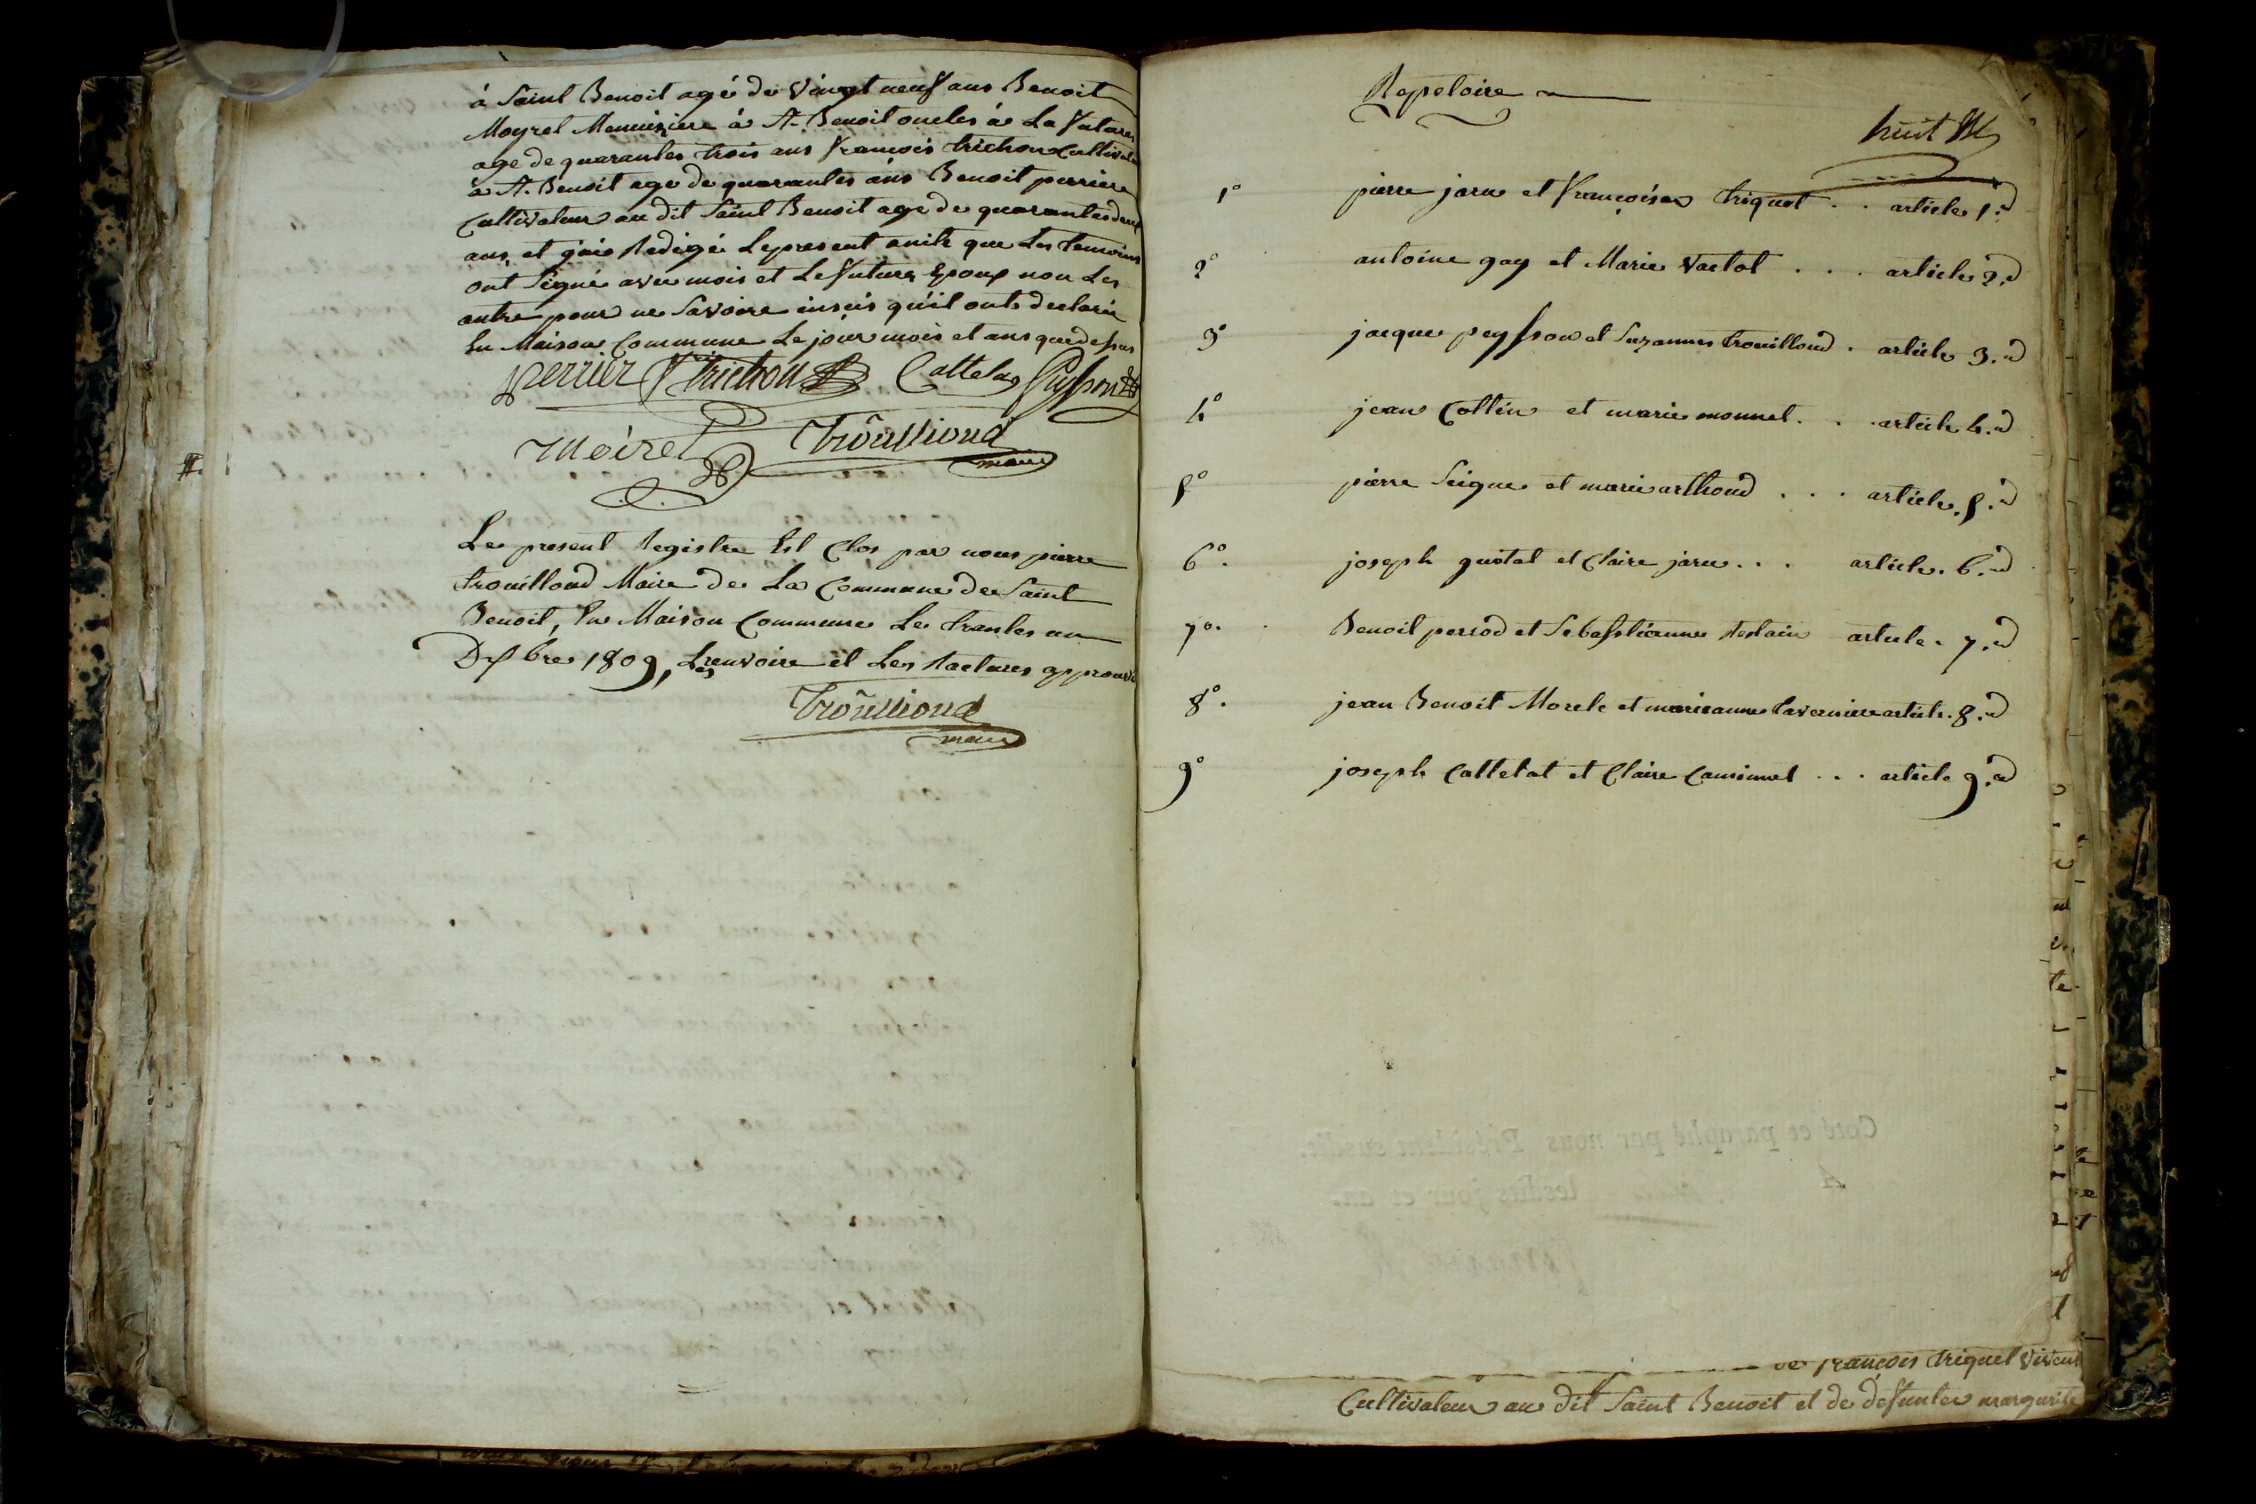 à Saint Benoit agé de vingt neuf ans Benoit
Moyret Menuiziere à St. Benoit oncles à La future
age de quarantes trois ans françois trichon Cultivateur
à St. Benoit age de quarantes ans Benoit perriere
Cultivateur au dit Saint Benoit age de quarantes deux
ans, et j'ai Redigé Le present acte que Les temoins
ont Signé avec mois et Le future Epoux non Les
autre pour ne Savoire inscis qu'il onts declarée
En Maison Commune Le jour mois et ans que dessus
perrier f trichon Cattelas Puysson
Moiret Trouilloud
maire
Le present Registre Est Clos par nous pierre
trouilloud Maire de La Commune de Saint
Benoit, En Maison Commune Le trantes un
Dexbre 1809, Les renvoire et Les Ractures approuvé
Trouilloud
maire
Repetoire
huit
1° pierre jaru et françoises triquet . . article 1.d
2° antoine gay et Marie Vactot . . . article 2.d
3° jacque peysson et Suzannes trouilloud . article 3.d
4° jean Cottin et marie monnet . . . article 4.d
5° pierre Seigne et marie arthoud . . . article . 5.d
6°. joseph guotat et Claire jaru . . . article . 6.d
7°. Benoit perrod et Sebasstiennes article . 7.d
8°. jean Benoit Morele et marieanne tavernierre article . 8.d
9° joseph Cattelat et Claire Caminnet . . . article 9.d
Coté et paraphé par nous Président susdit.
A lesdits jour et an.
de françois triquet vivant
Cultivateur au dit Saint Benoit et de defuntes margurite